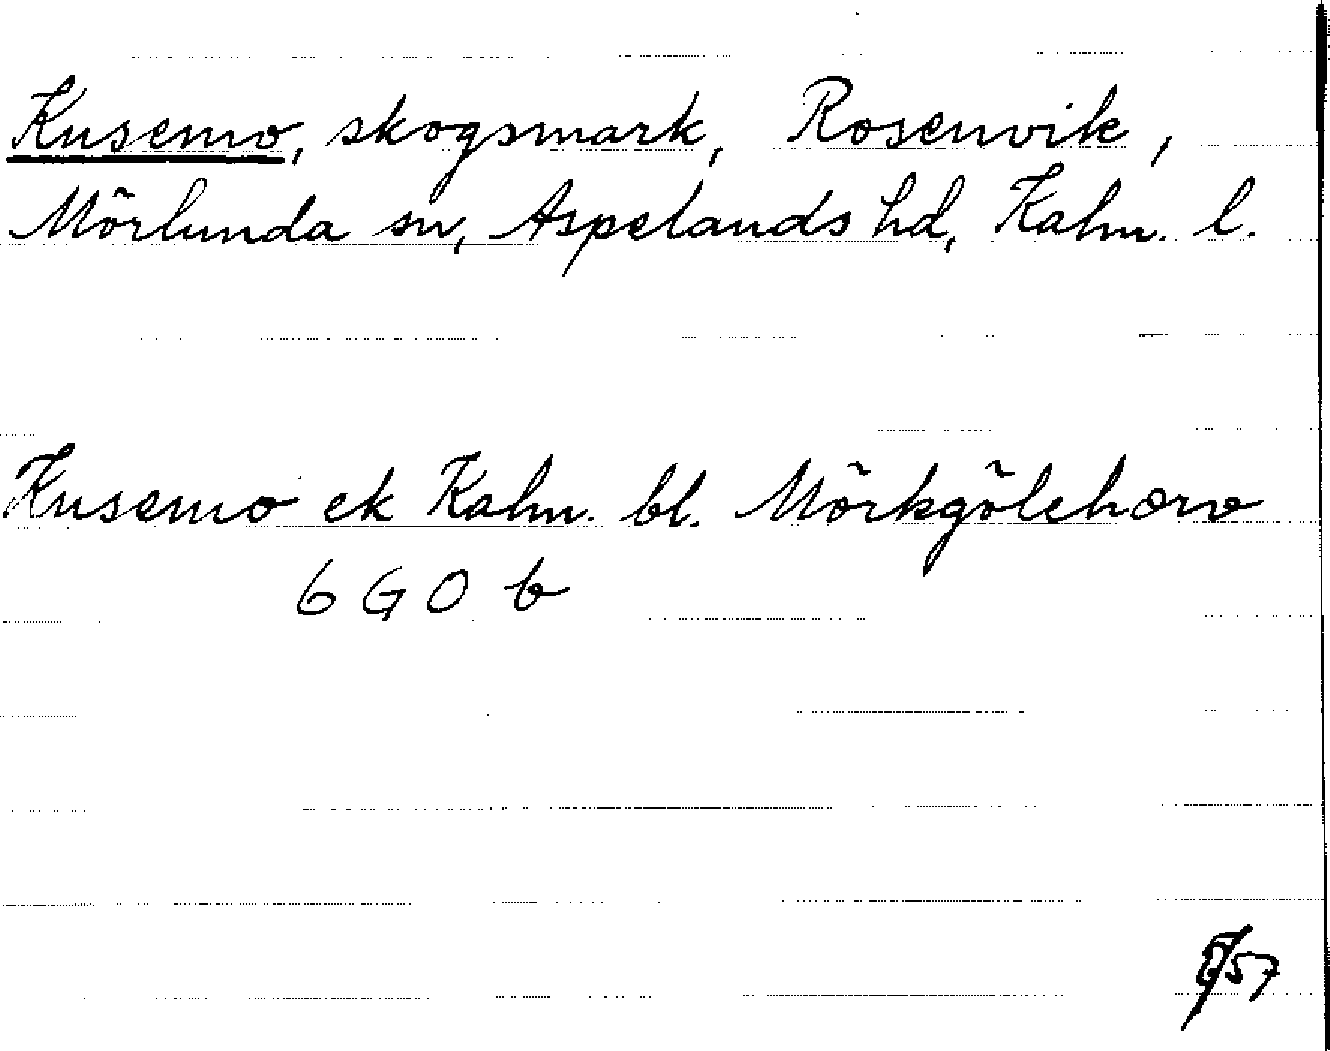 Kusemo, skogsmark, Rosenvik,
Mörlunda sn, Aspelands hd, Kalm. l.
Kusemo ek Kalm. bl. Mörkgölehorv
6 G O b